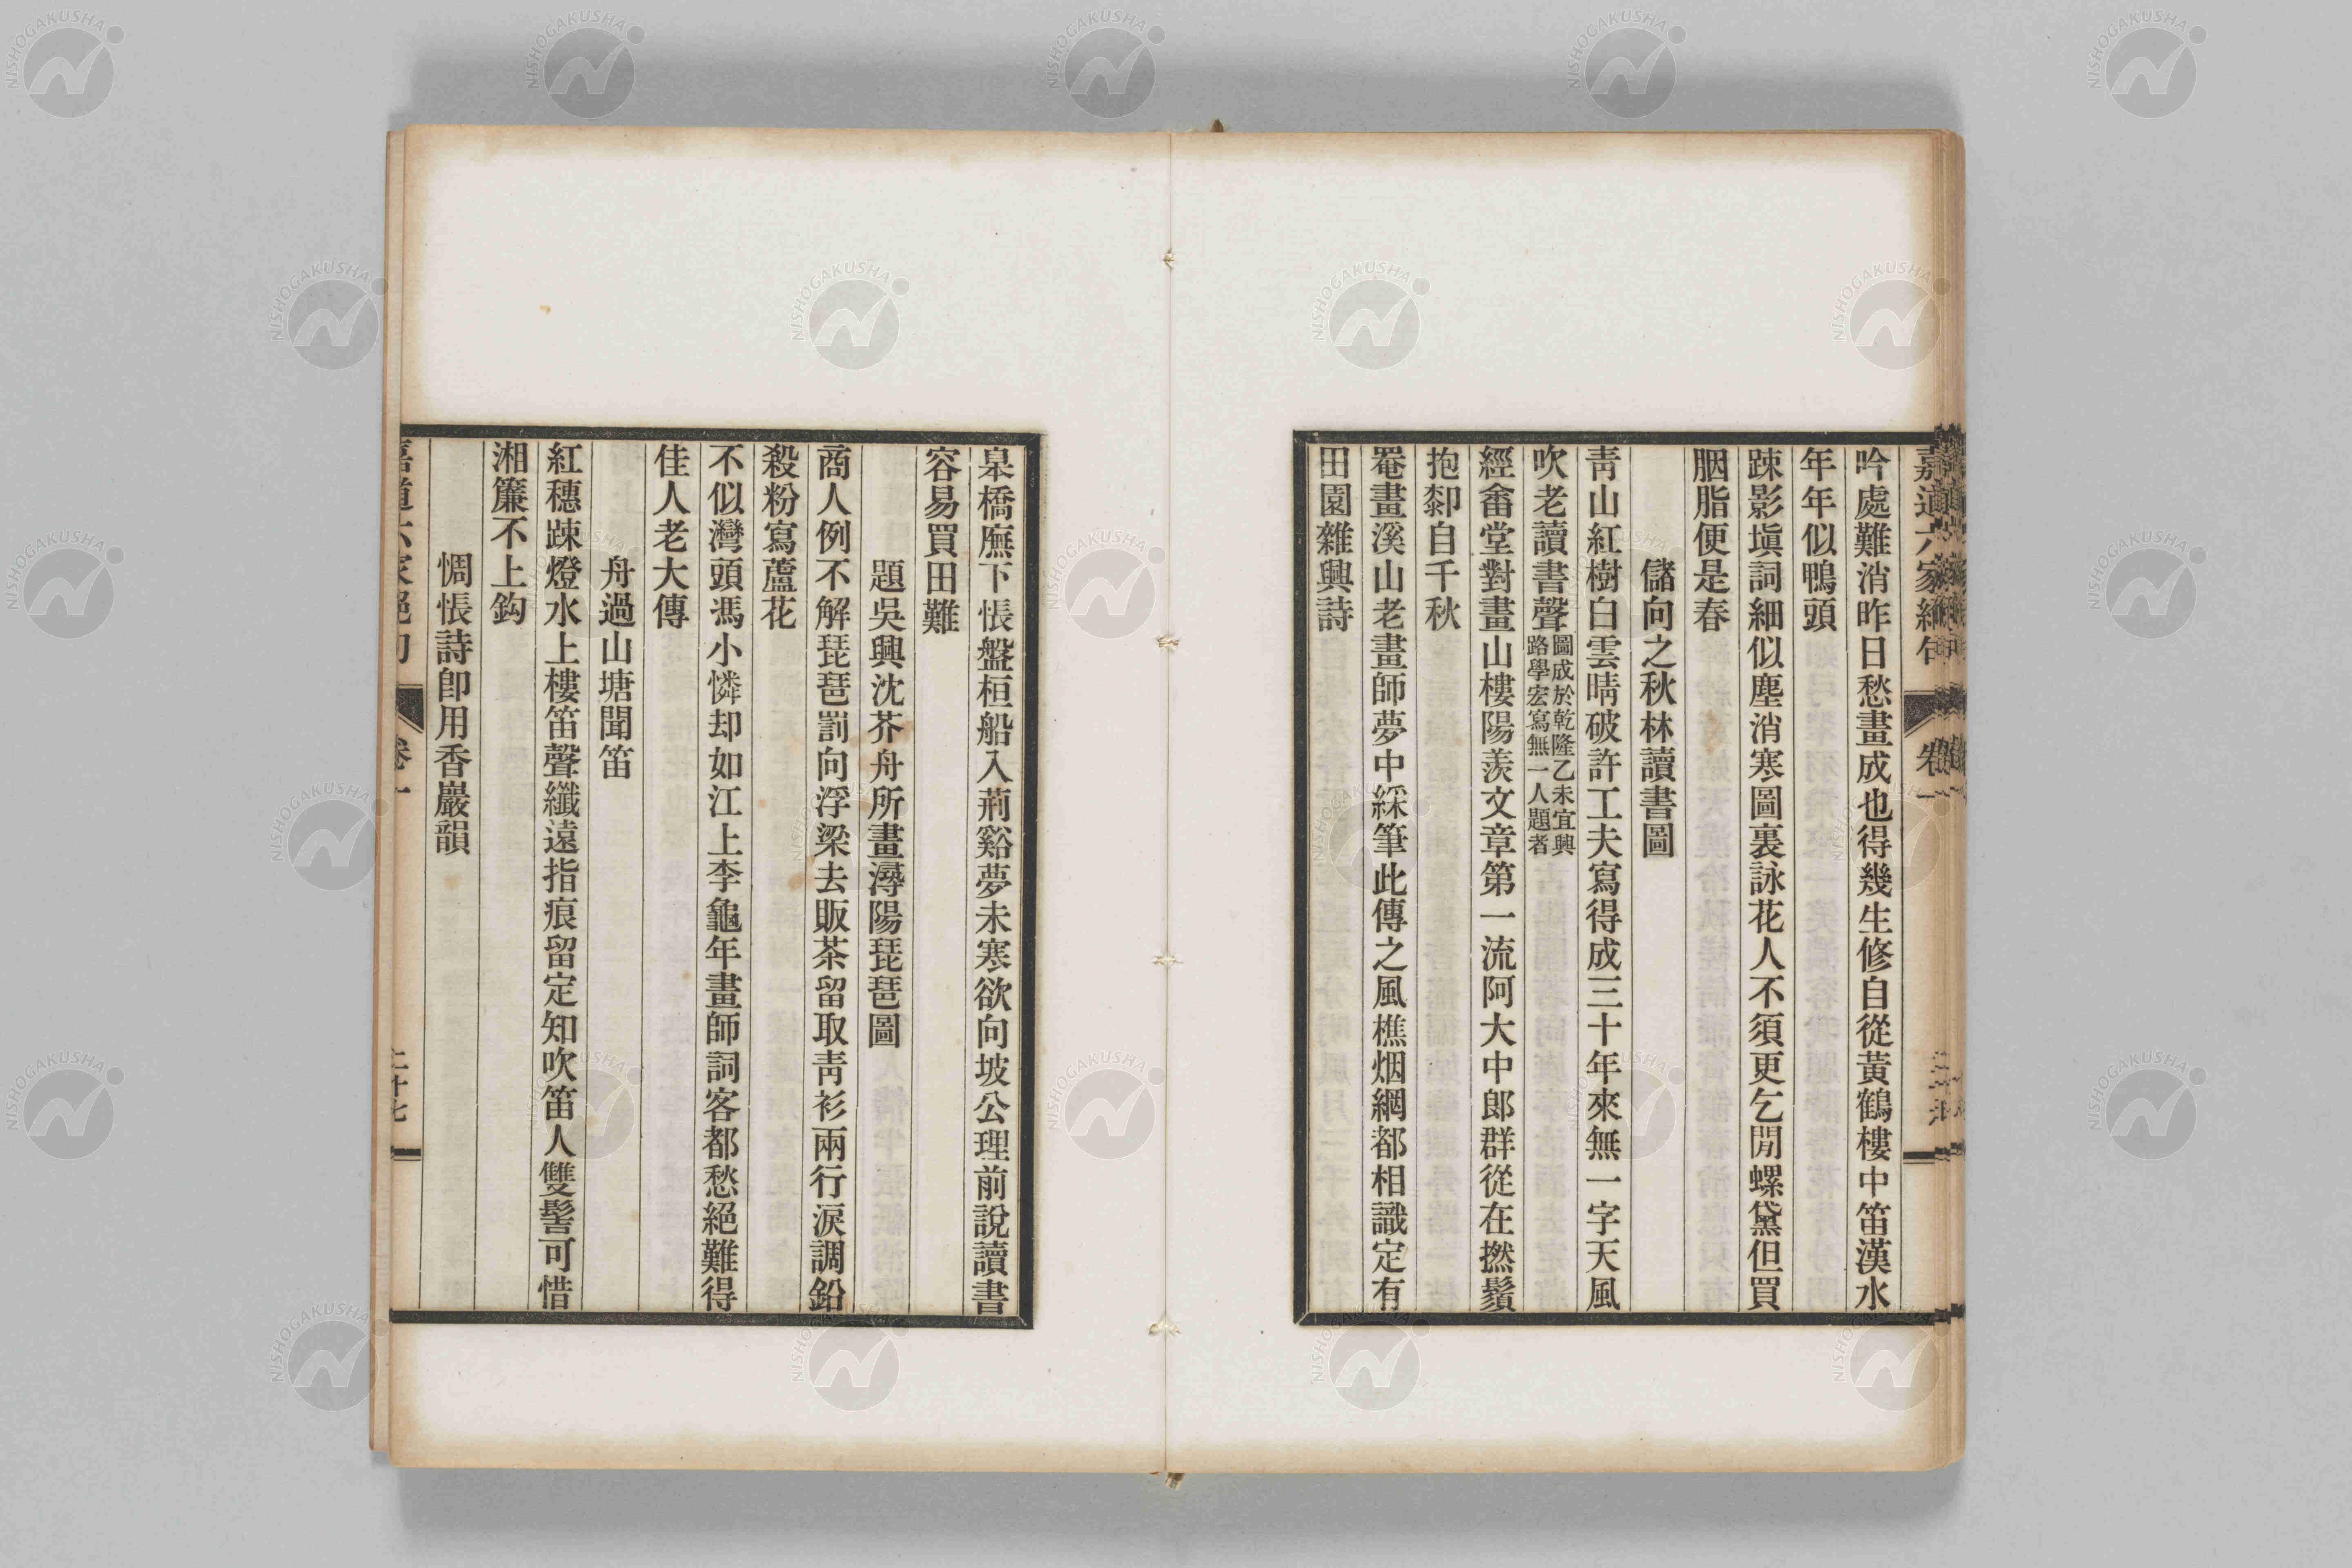 嘉道六家絕句
卷一
吟處難消昨日愁畫成也得幾生修自從黃鶴樓中笛漢水
年年似鴨頭
踈影塡詞細似塵消寒圖裏詠花人不須更乞閒螺黛但買
胭脂便是春
儲向之秋林讀書圖
靑山紅樹白雲晴破許工夫寫得成三十年來無一字天風
吹老讀書聲
圖成於乾隆乙未宜興
路學宏寫無一人題者
經畬堂對畫山樓陽羨文章第一流阿大中郎群從在撚鬚
抱邻自千秋
罨畫溪山老畫師夢中綵筆此傳之風樵烟網都相識定有
田園雜興詩
皋橋廡下悵盤桓船入荊谿夢未寒欲向坡公理前說讀書
容易買田難
題吳興沈芥舟所畫潯陽琵琶圖
商人例不解琵琶罰向浮梁去販茶留取靑衫兩行淚調鉛
殺粉寫蘆花
不似灣頭馮小憐却如江上李龜年畫師詞客都愁絕難得
佳人老大傳
舟過山塘聞笛
紅穗踈燈水上樓笛聲纖遠指痕留定知吹笛人雙髻可惜
湘簾不上鈎
惆悵詩卽用香巖韻
嘉道六家絕句
卷一
二十七
NISHOGAKUSHA